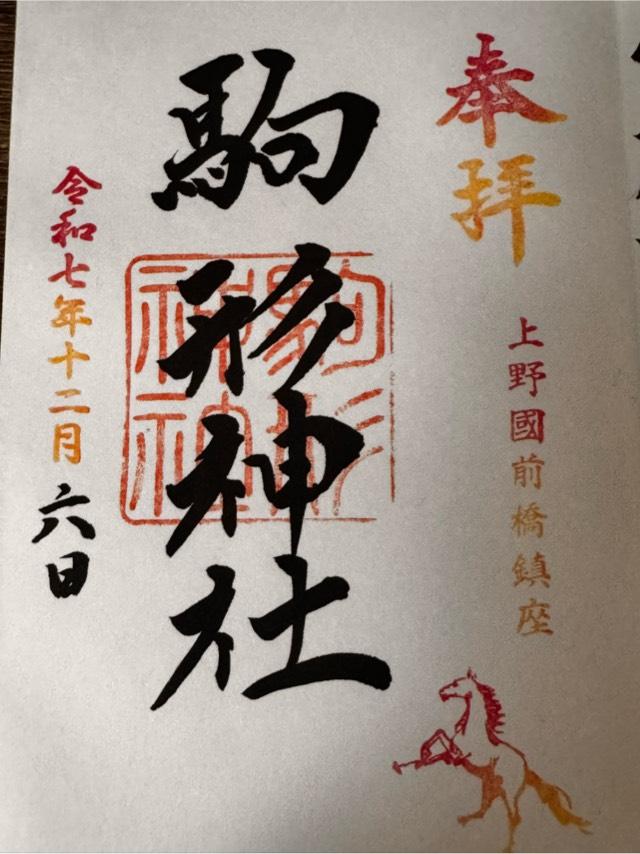 奉拝
上野國前橋鎮座
駒形神社
駒形
神社
令和七年十二月六日